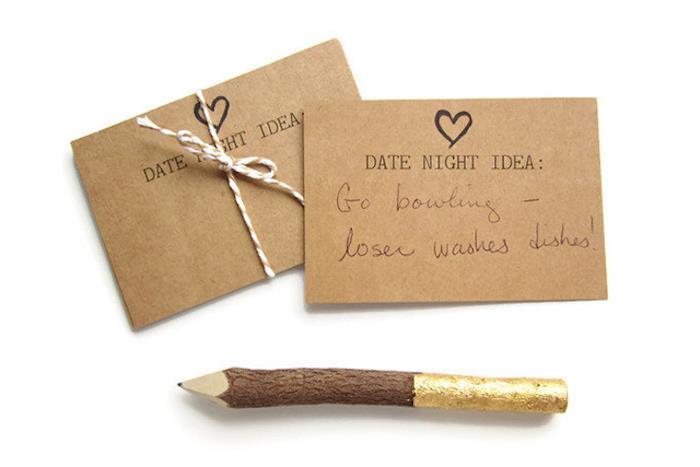 DATE NIGHT IDEA
DATE NIGHT IDEA:
Go bowling –
loser washes dishes!